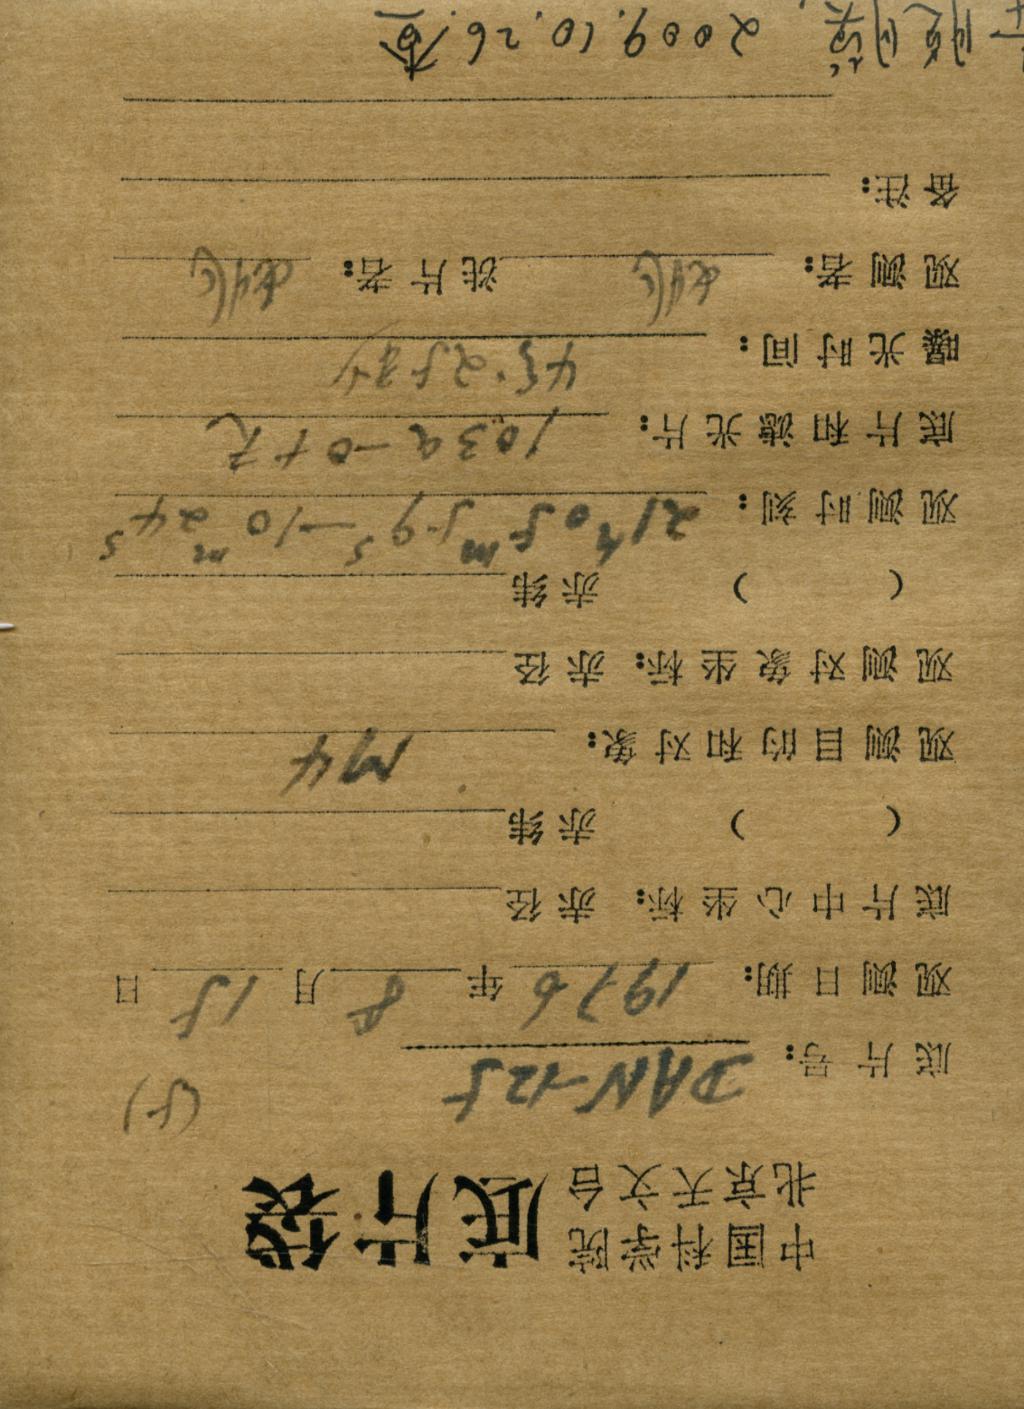 中国科学院
北京天文台 底片袋
(5)
底片号: DAN-125
观测日期: 1976年8月15日
底片中心坐标: 赤径
( ) 赤纬
观测目的和对象: M4
观测对象坐标: 赤径
( ) 赤纬
观测时刻: 21h05m59s—10m24s
底片和滤光片: 103a-O+无
曝光时间: 4分25秒
观测者: 洗片者:
备注:
2009.10.26查